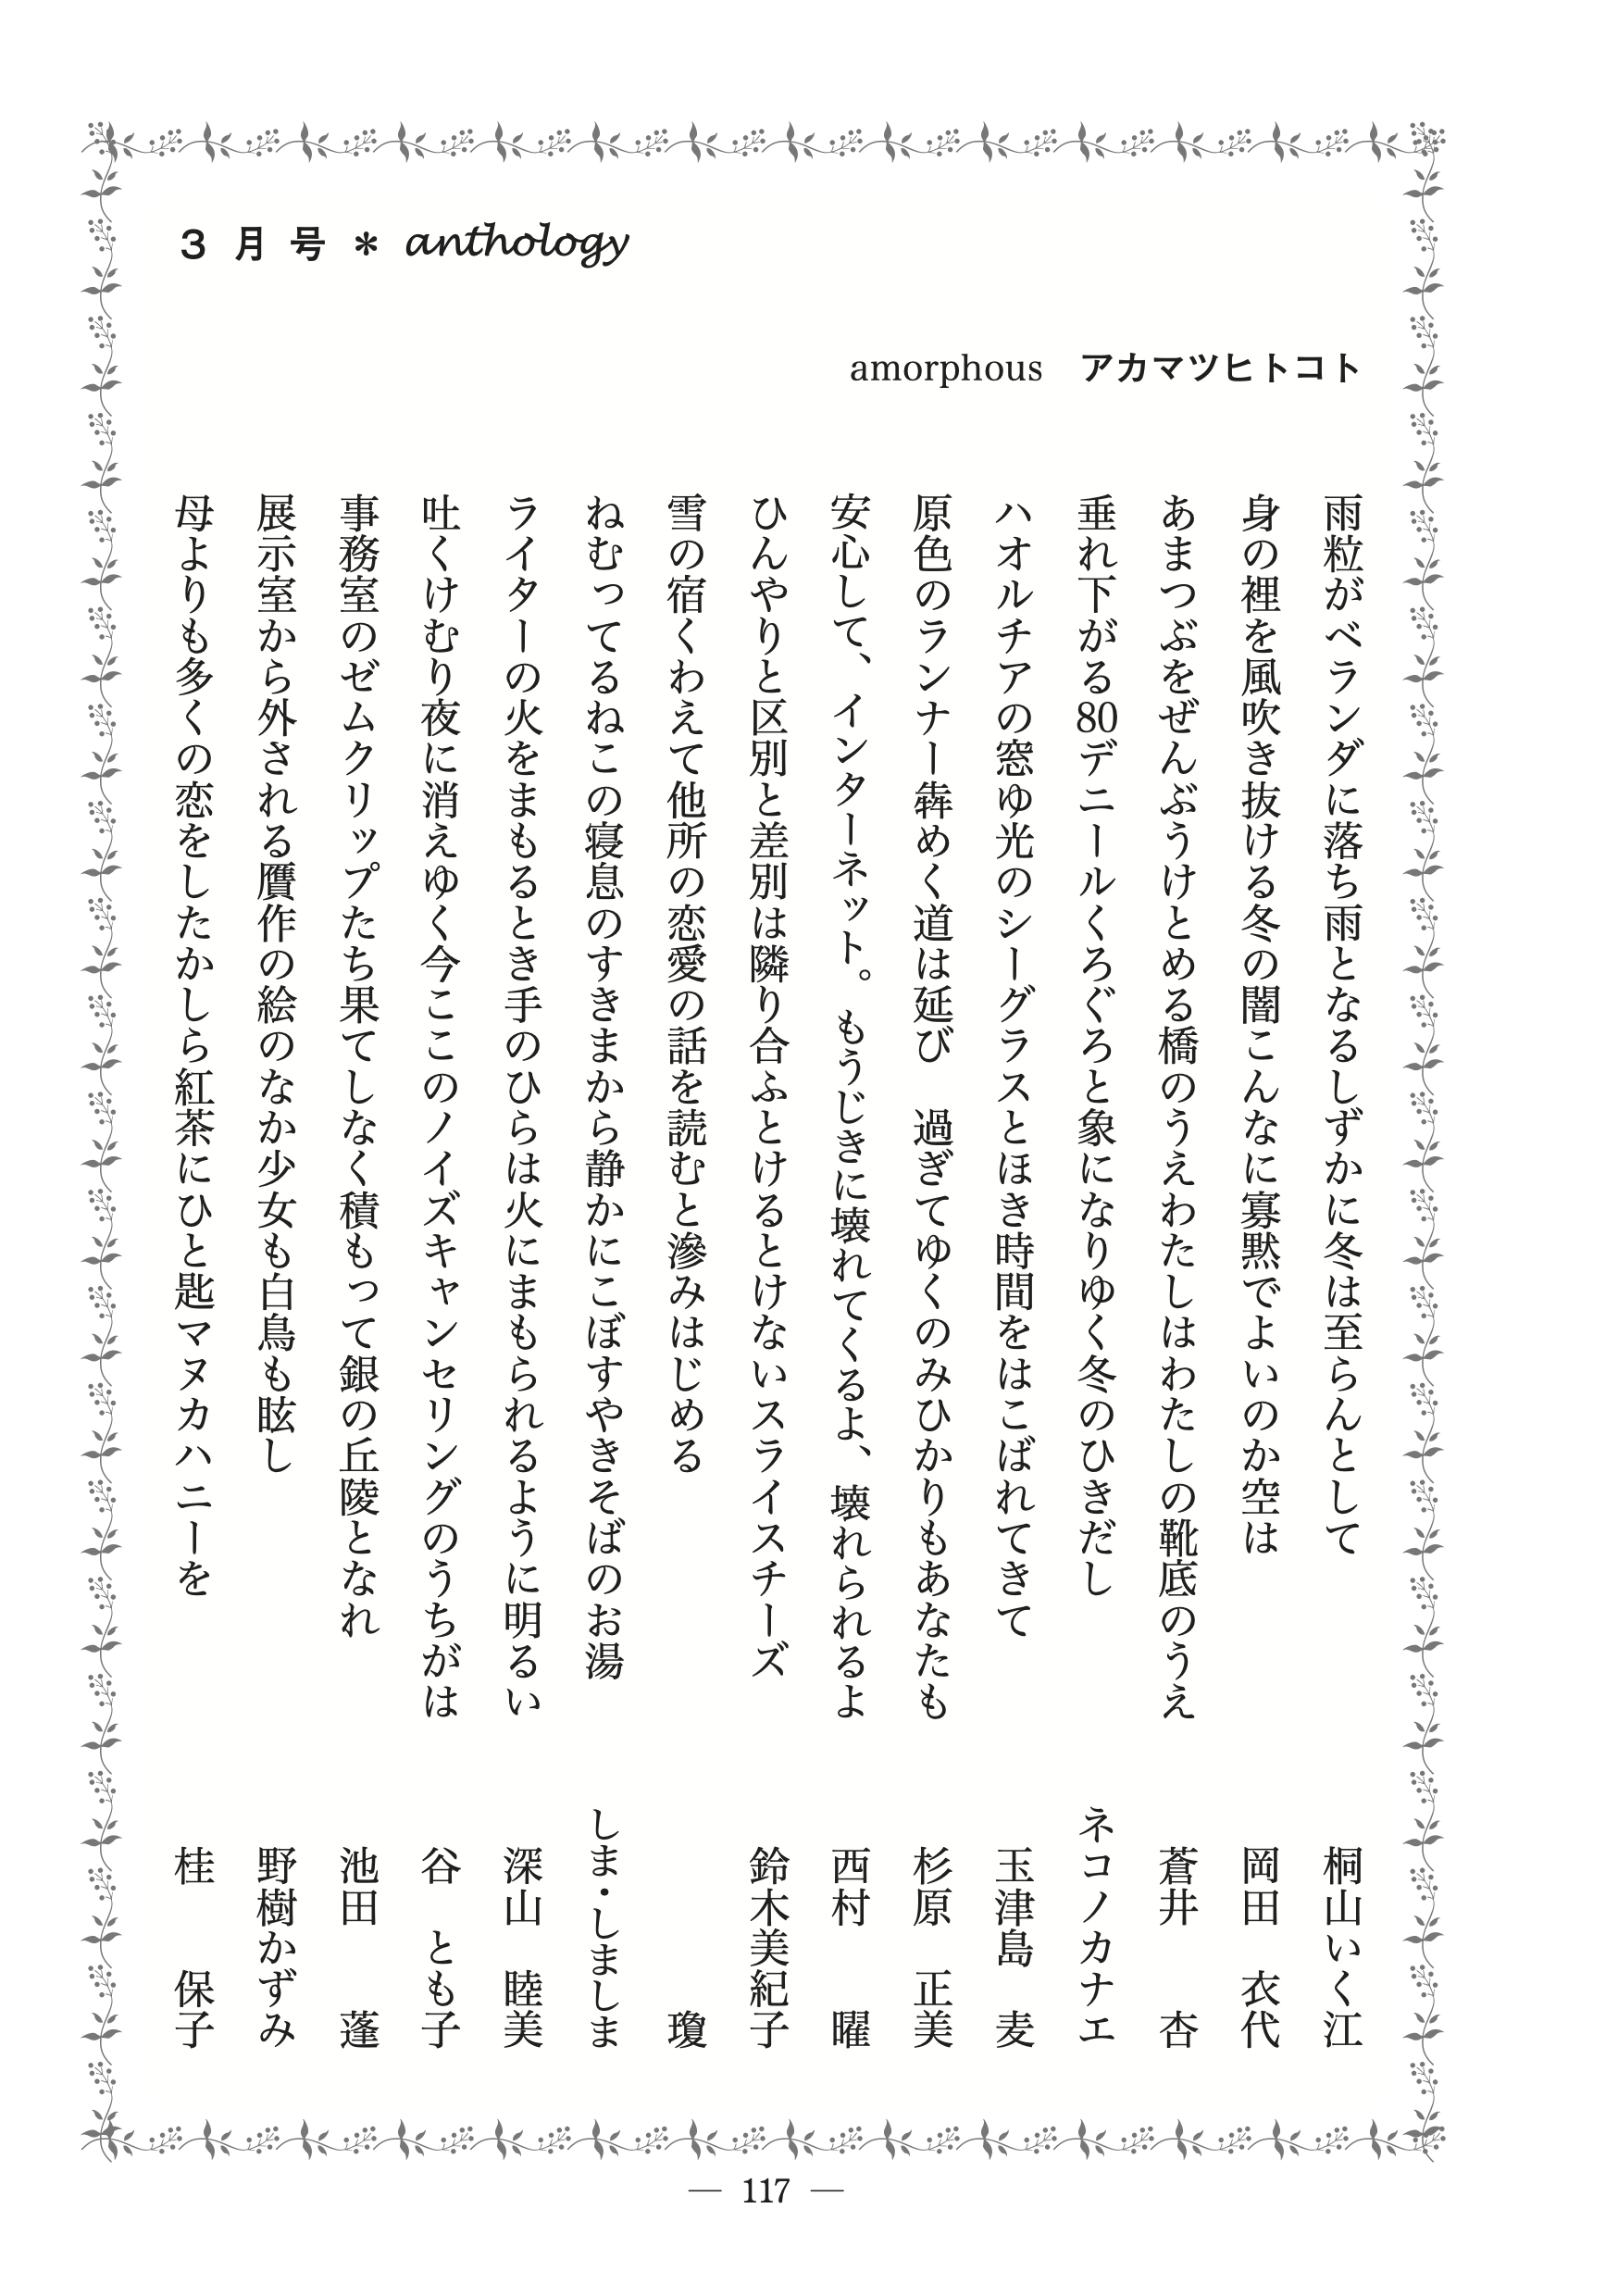 3月号＊anthology
amorphous　アカマツヒトコト
雨粒がベランダに落ち雨となるしずかに冬は至らんとして　桐山いく江
身の裡を風吹き抜ける冬の闇こんなに寡黙でよいのか空は　岡田　衣代
あまつぶをぜんぶうけとめる橋のうえわたしはわたしの靴底のうえ　蒼井　杏
垂れ下がる80デニールくろぐろと象になりゆく冬のひきだし　ネコノカナエ
ハオルチアの窓ゆ光のシーグラスとほき時間をはこばれてきて　玉津島　麦
原色のランナー犇めく道は延び　過ぎてゆくのみひかりもあなたも　杉原　正美
安心して、インターネット。もうじきに壊れてくるよ、壊れられるよ　西村　曜
ひんやりと区別と差別は隣り合ふとけるとけないスライスチーズ　鈴木美紀子
雪の宿くわえて他所の恋愛の話を読むと滲みはじめる　瓊
ねむってるねこの寝息のすきまから静かにこぼすやきそばのお湯　しま・しましま
ライターの火をまもるとき手のひらは火にまもられるように明るい　深山　睦美
吐くけむり夜に消えゆく今ここのノイズキャンセリングのうちがは　谷　とも子
事務室のゼムクリップたち果てしなく積もって銀の丘陵となれ　池田　蓬
展示室から外される贋作の絵のなか少女も白鳥も眩し　野樹かずみ
母よりも多くの恋をしたかしら紅茶にひと匙マヌカハニーを　桂　保子
― 117 ―